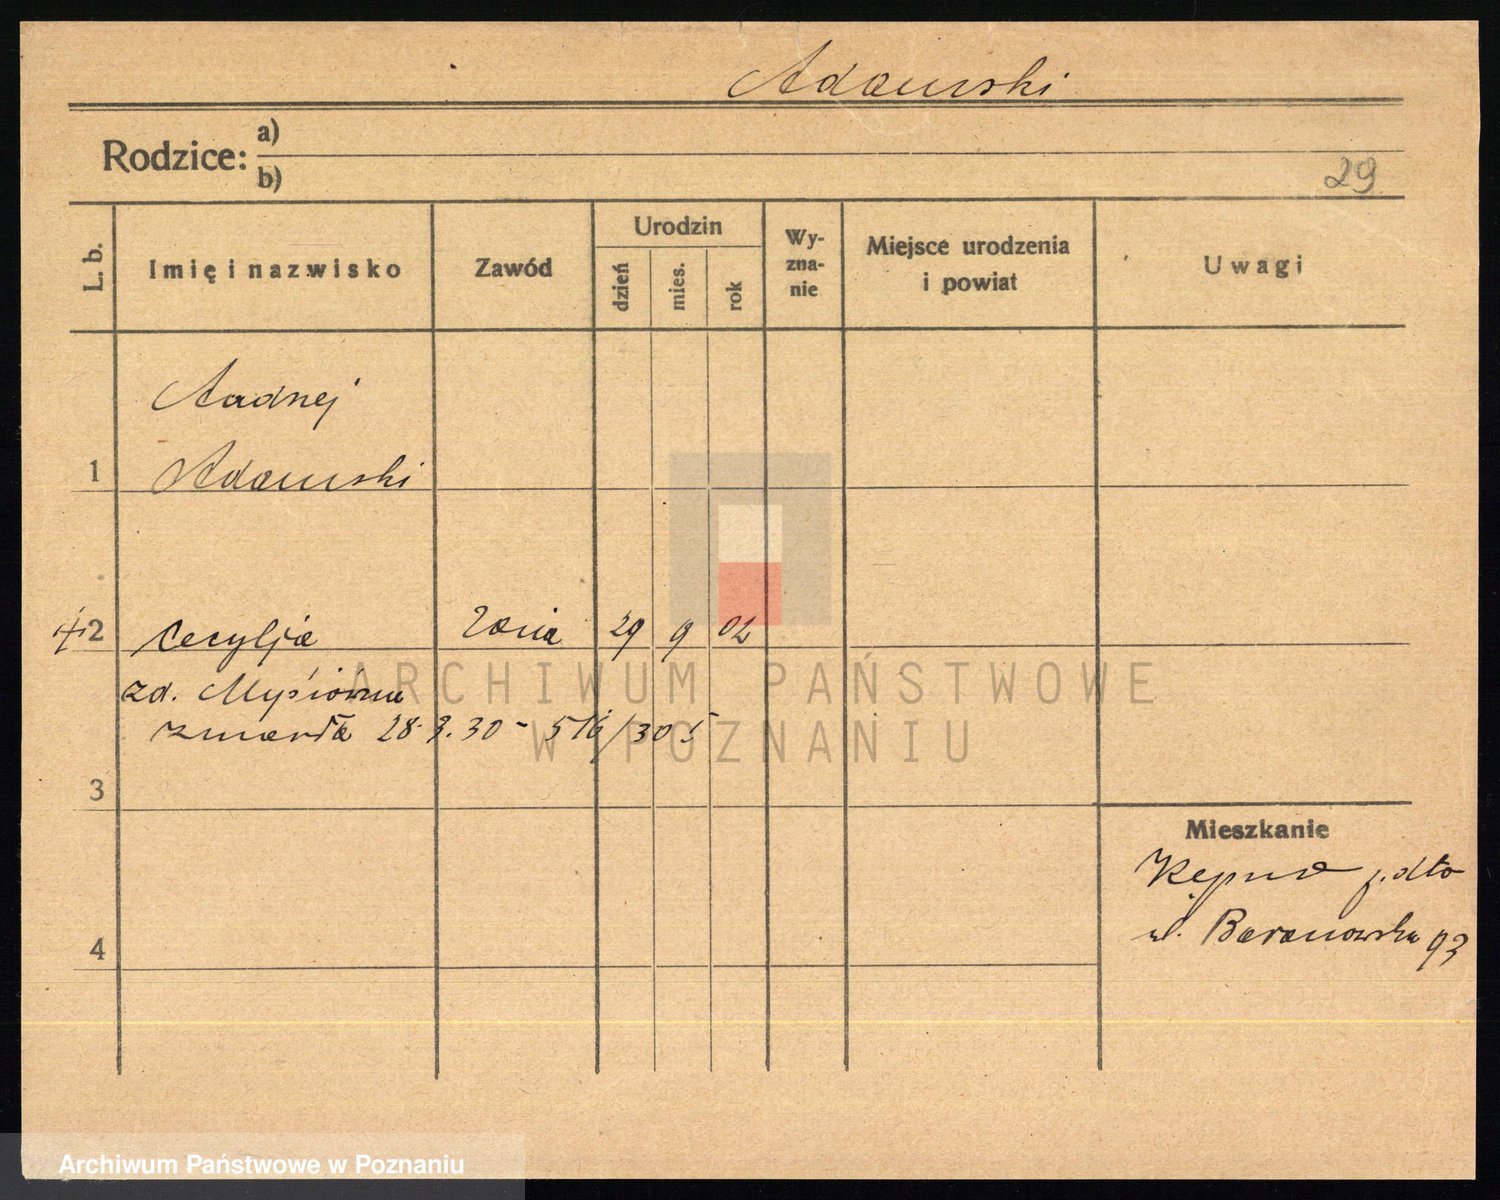 Adamski
Rodzice:
a)
b)
29
L. b.
Imię i nazwisko
Zawód
Urodzin
dzień
mies.
rok
Wy-
zna-
nie
Miejsce urodzenia
i powiat
Uwagi
Andrzej
1 Adamski
2 Cecylja żona 29 9 02
zd.
zmarła 28. 30 - 516/30
3
4
Mieszkanie
Kępno
ul. Baranowska 93
ARCHIWUM PAŃSTWOWE
W POZNANIU
Archiwum Państwowe w Poznaniu